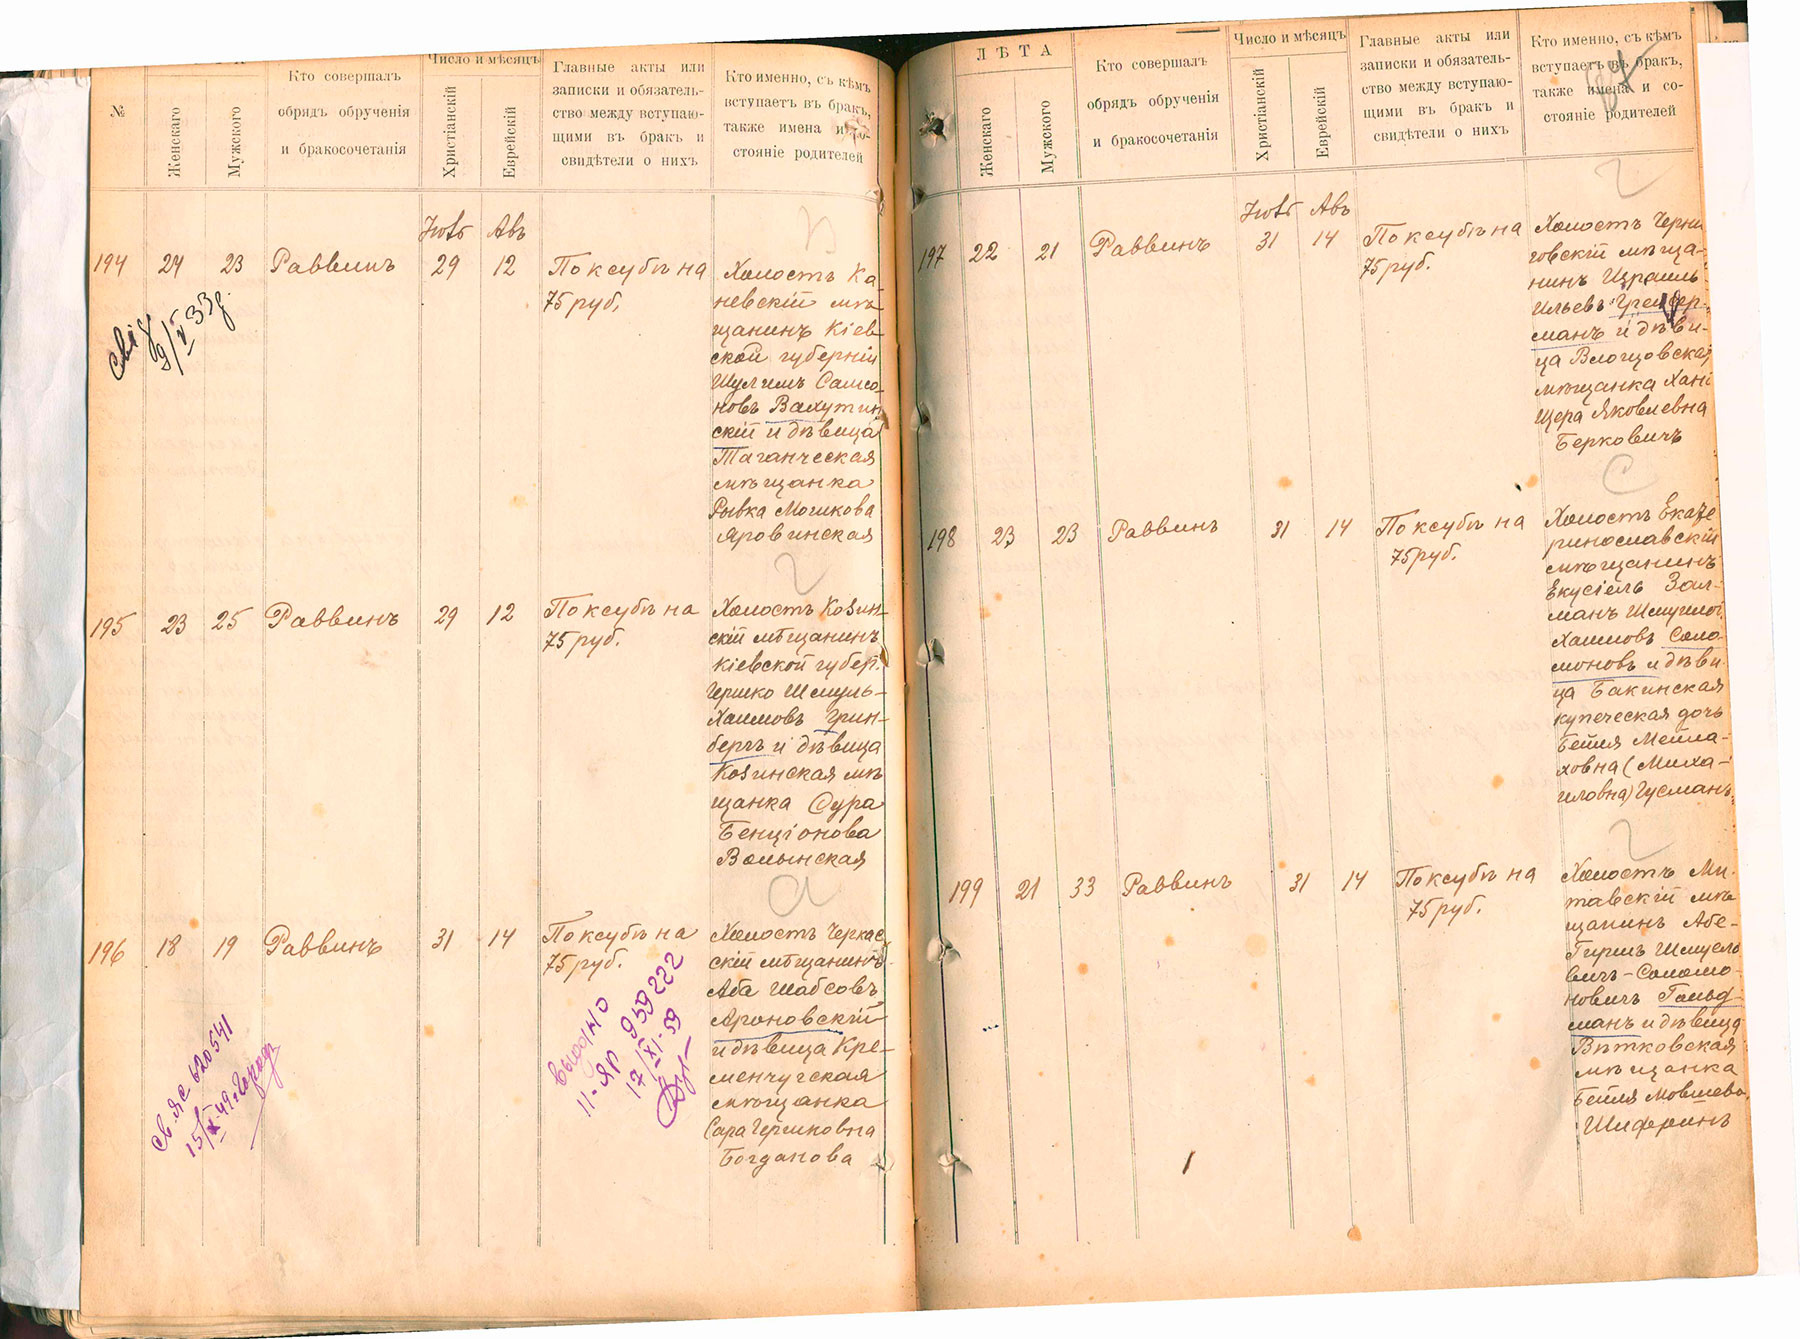 №
Женскаго
Мужского
Кто совершалъ
обрядъ обрученія
и бракосочетанія
Число и мѣсяцъ
Христіанскій
Еврейскій
Главные акты или
записки и обязатель-
ство между вступаю-
щими въ бракъ и
свидѣтели о нихъ
Кто именно, съ кѣмъ
вступаетъ въ бракъ,
также имена и со-
стояніе родителей
Авъ
194 24 23 Раввинъ 29 12
По ксубѣ на
75 руб.
Холостъ Ка-
невскій мѣ-
щанинъ Кіев-
ской губерніи
Шулимъ Самсо-
новъ Вахутин
скій и дѣвица
Таганческая
мѣщанка
Рывка Мошкова
Яровинская
195 23 25 Раввинъ 29 12
По ксубѣ на
75 руб.
Холостъ Козин-
скій мѣщанинъ
Кіевской губер.
Гершко Шмуль-
Хаимовъ Грин-
бергъ и дѣвица
Козинская мѣ
щанка Сура
Бенціонова
Волынская
196 18 19 Раввинъ 31 14
По ксубѣ на
75 руб.
Холостъ Черкас
скій мѣщанинъ
Аба Шабсовъ
Ароновскій
и дѣвица Кре-
менчугская
мѣщанка
Сара Гершковна
Богданова
св. ЯС 620541
15/X-49г.
выдано
11-ЯР 959222
17/XI-59
ЛѢТА
Женскаго
Мужского
Кто совершалъ
обрядъ обрученія
и бракосочетанія
Число и мѣсяцъ
Христіанскій
Еврейскій
Главные акты или
записки и обязатель-
ство между вступаю-
щими въ бракъ и
свидѣтели о нихъ
Кто именно, съ кѣмъ
вступаетъ въ бракъ,
также имена и со-
стояніе родителей
Авъ
197 22 21 Раввинъ 31 14
По ксубѣ на
75 руб.
Холостъ Черни
говскій мѣща-
нинъ Израиль
Ильевъ Грейфер-
манъ и дѣви-
ца
мѣщанка Хана
Яковлевна
Берковичъ
198 23 23 Раввинъ 31 14
По ксубѣ на
75 руб.
Холостъ Екате
ринославскій
мѣщанинъ
Екусіель Зал-
манъ
Хаимовъ Соло-
моновъ и дѣви-
ца Бакинская
купеческая дочь
Бейля Мейла-
ховна (Миха-
иловна) Гусманъ.
199 21 33 Раввинъ 31 14
По ксубѣ на
75 руб.
Холостъ Ми-
тавскій мѣ
щанинъ Абе-
Гиршъ Шмуело
вичъ-Соломо-
новичъ Гольд-
манъ и дѣвица
Вѣтковская
мѣщанка
Бейля Мовшева
Шиферинъ